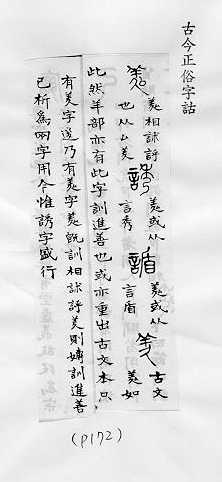 古今正俗字詁
㕗 㕗相訹呼也从厶羑 誘 㕗或从言秀 㕗或从言盾 羑 古文㕗如
此然羊部亦有此字訓進善也或亦重出古文本只
有羑字遂乃有㕗字㕗既訓相訹呼羑則訓進善
已析為兩字用今惟誘字盛行
(P172)